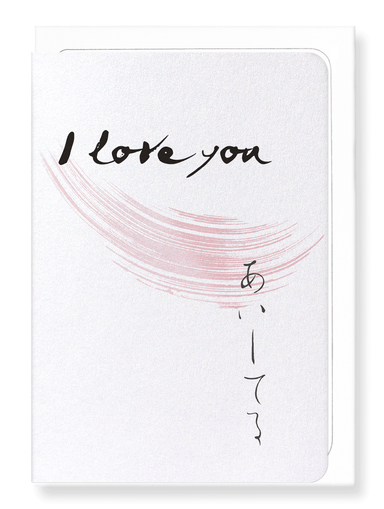 I love you
あいしてる